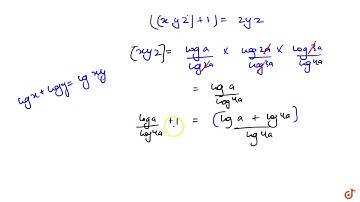 ((xyz)+1) = 2yz
(xyz) = log a / log 2a × log 2a / log 3a × log 3a / log 4a
log x + log y = log xy
= log a / log 4a
log a / log 4a + 1 = (log a + log 4a) / log 4a